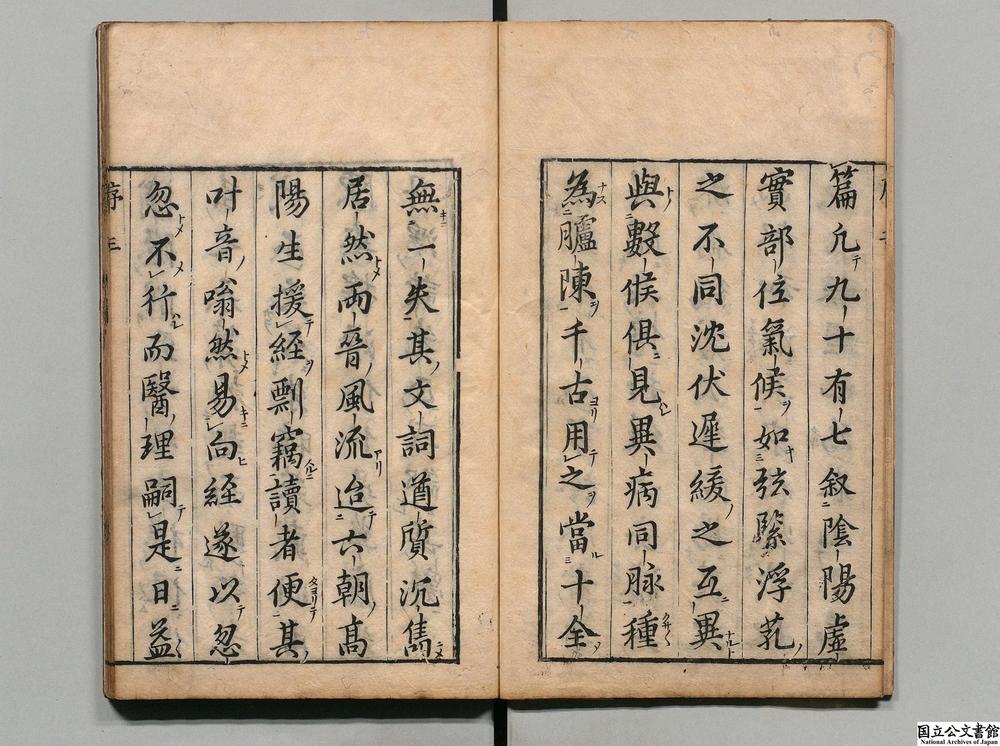 篇凢九十有七叙陰陽虚
實部位氣候如弦緊浮芤
之不同沈伏遲緩之互異
與數候俱見異病同脉種
為臚陳千古用之當十全
無一失其文詞遒質沉雋
居然両晉風流迨六朝髙
陽生援経剽竊讀者便其
叶音嗡然易向経遂以忽
忽不行而醫理嗣是日益
序 三
国立公文書館
National Archives of Japan